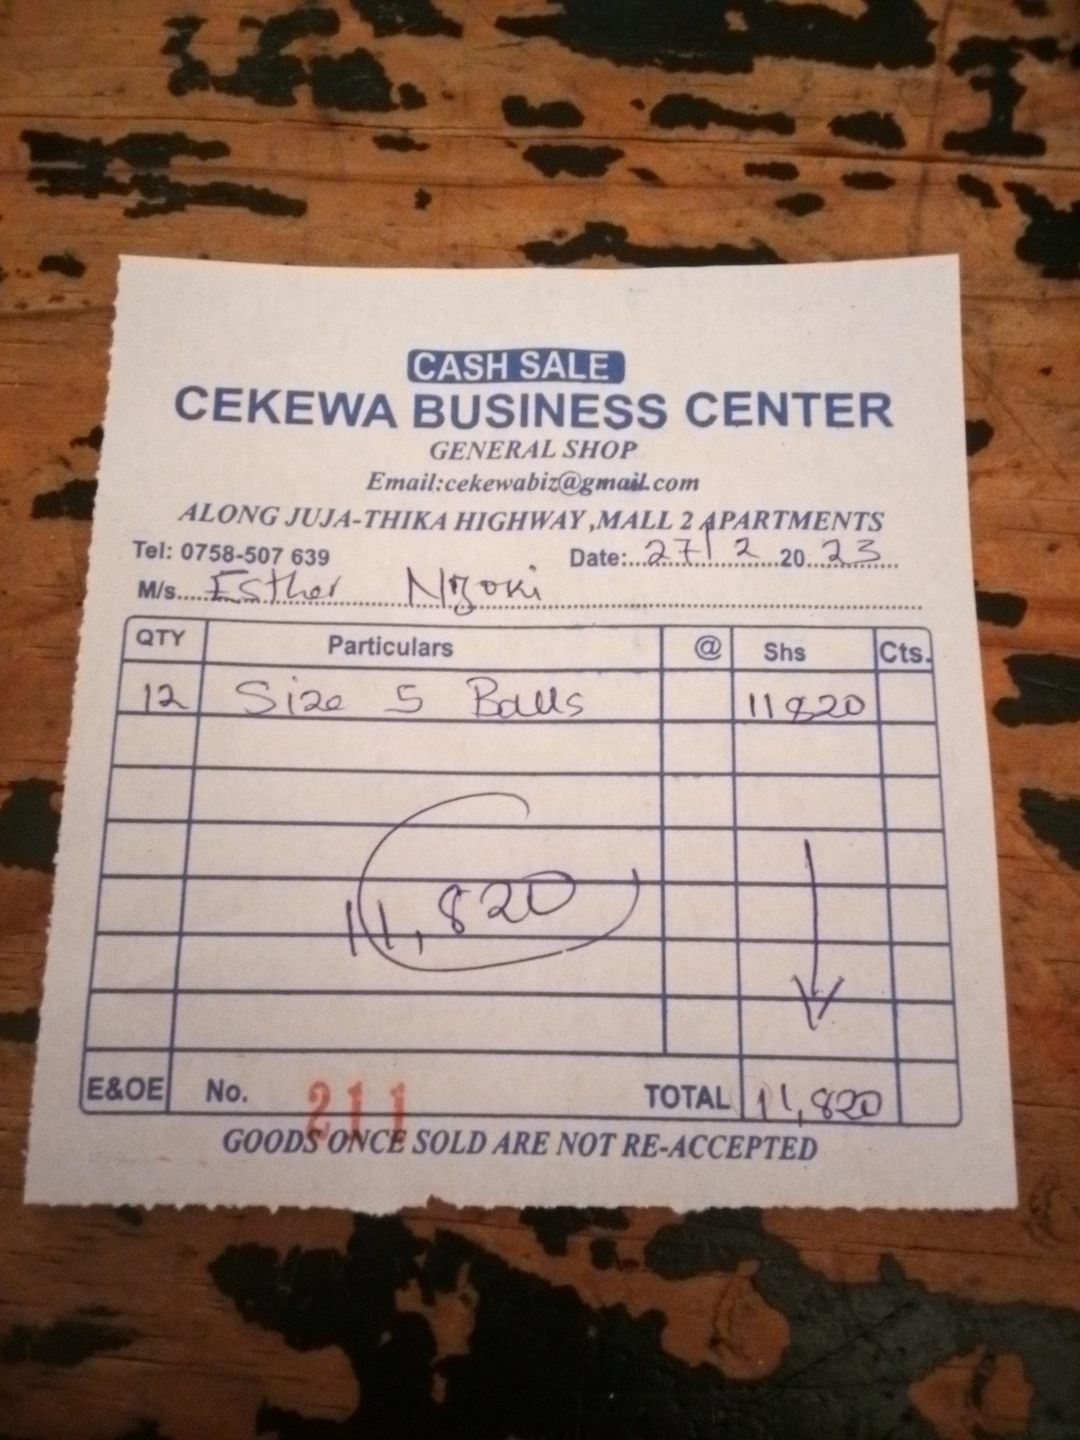 CASH SALE
CEKEWA BUSINESS CENTER
GENERAL SHOP
Email:cekewabiz@gmail.com
ALONG JUJA-THIKA HIGHWAY,MALL 2 APARTMENTS
Tel: 0758-507 639 Date:...27/2...20...23
M/s....Esther Nzoki
QTY Particulars @ Shs Cts.
12 Size 5 Balls 11820
11,820
E&OE No. 211 TOTAL 11,820
GOODS ONCE SOLD ARE NOT RE-ACCEPTED